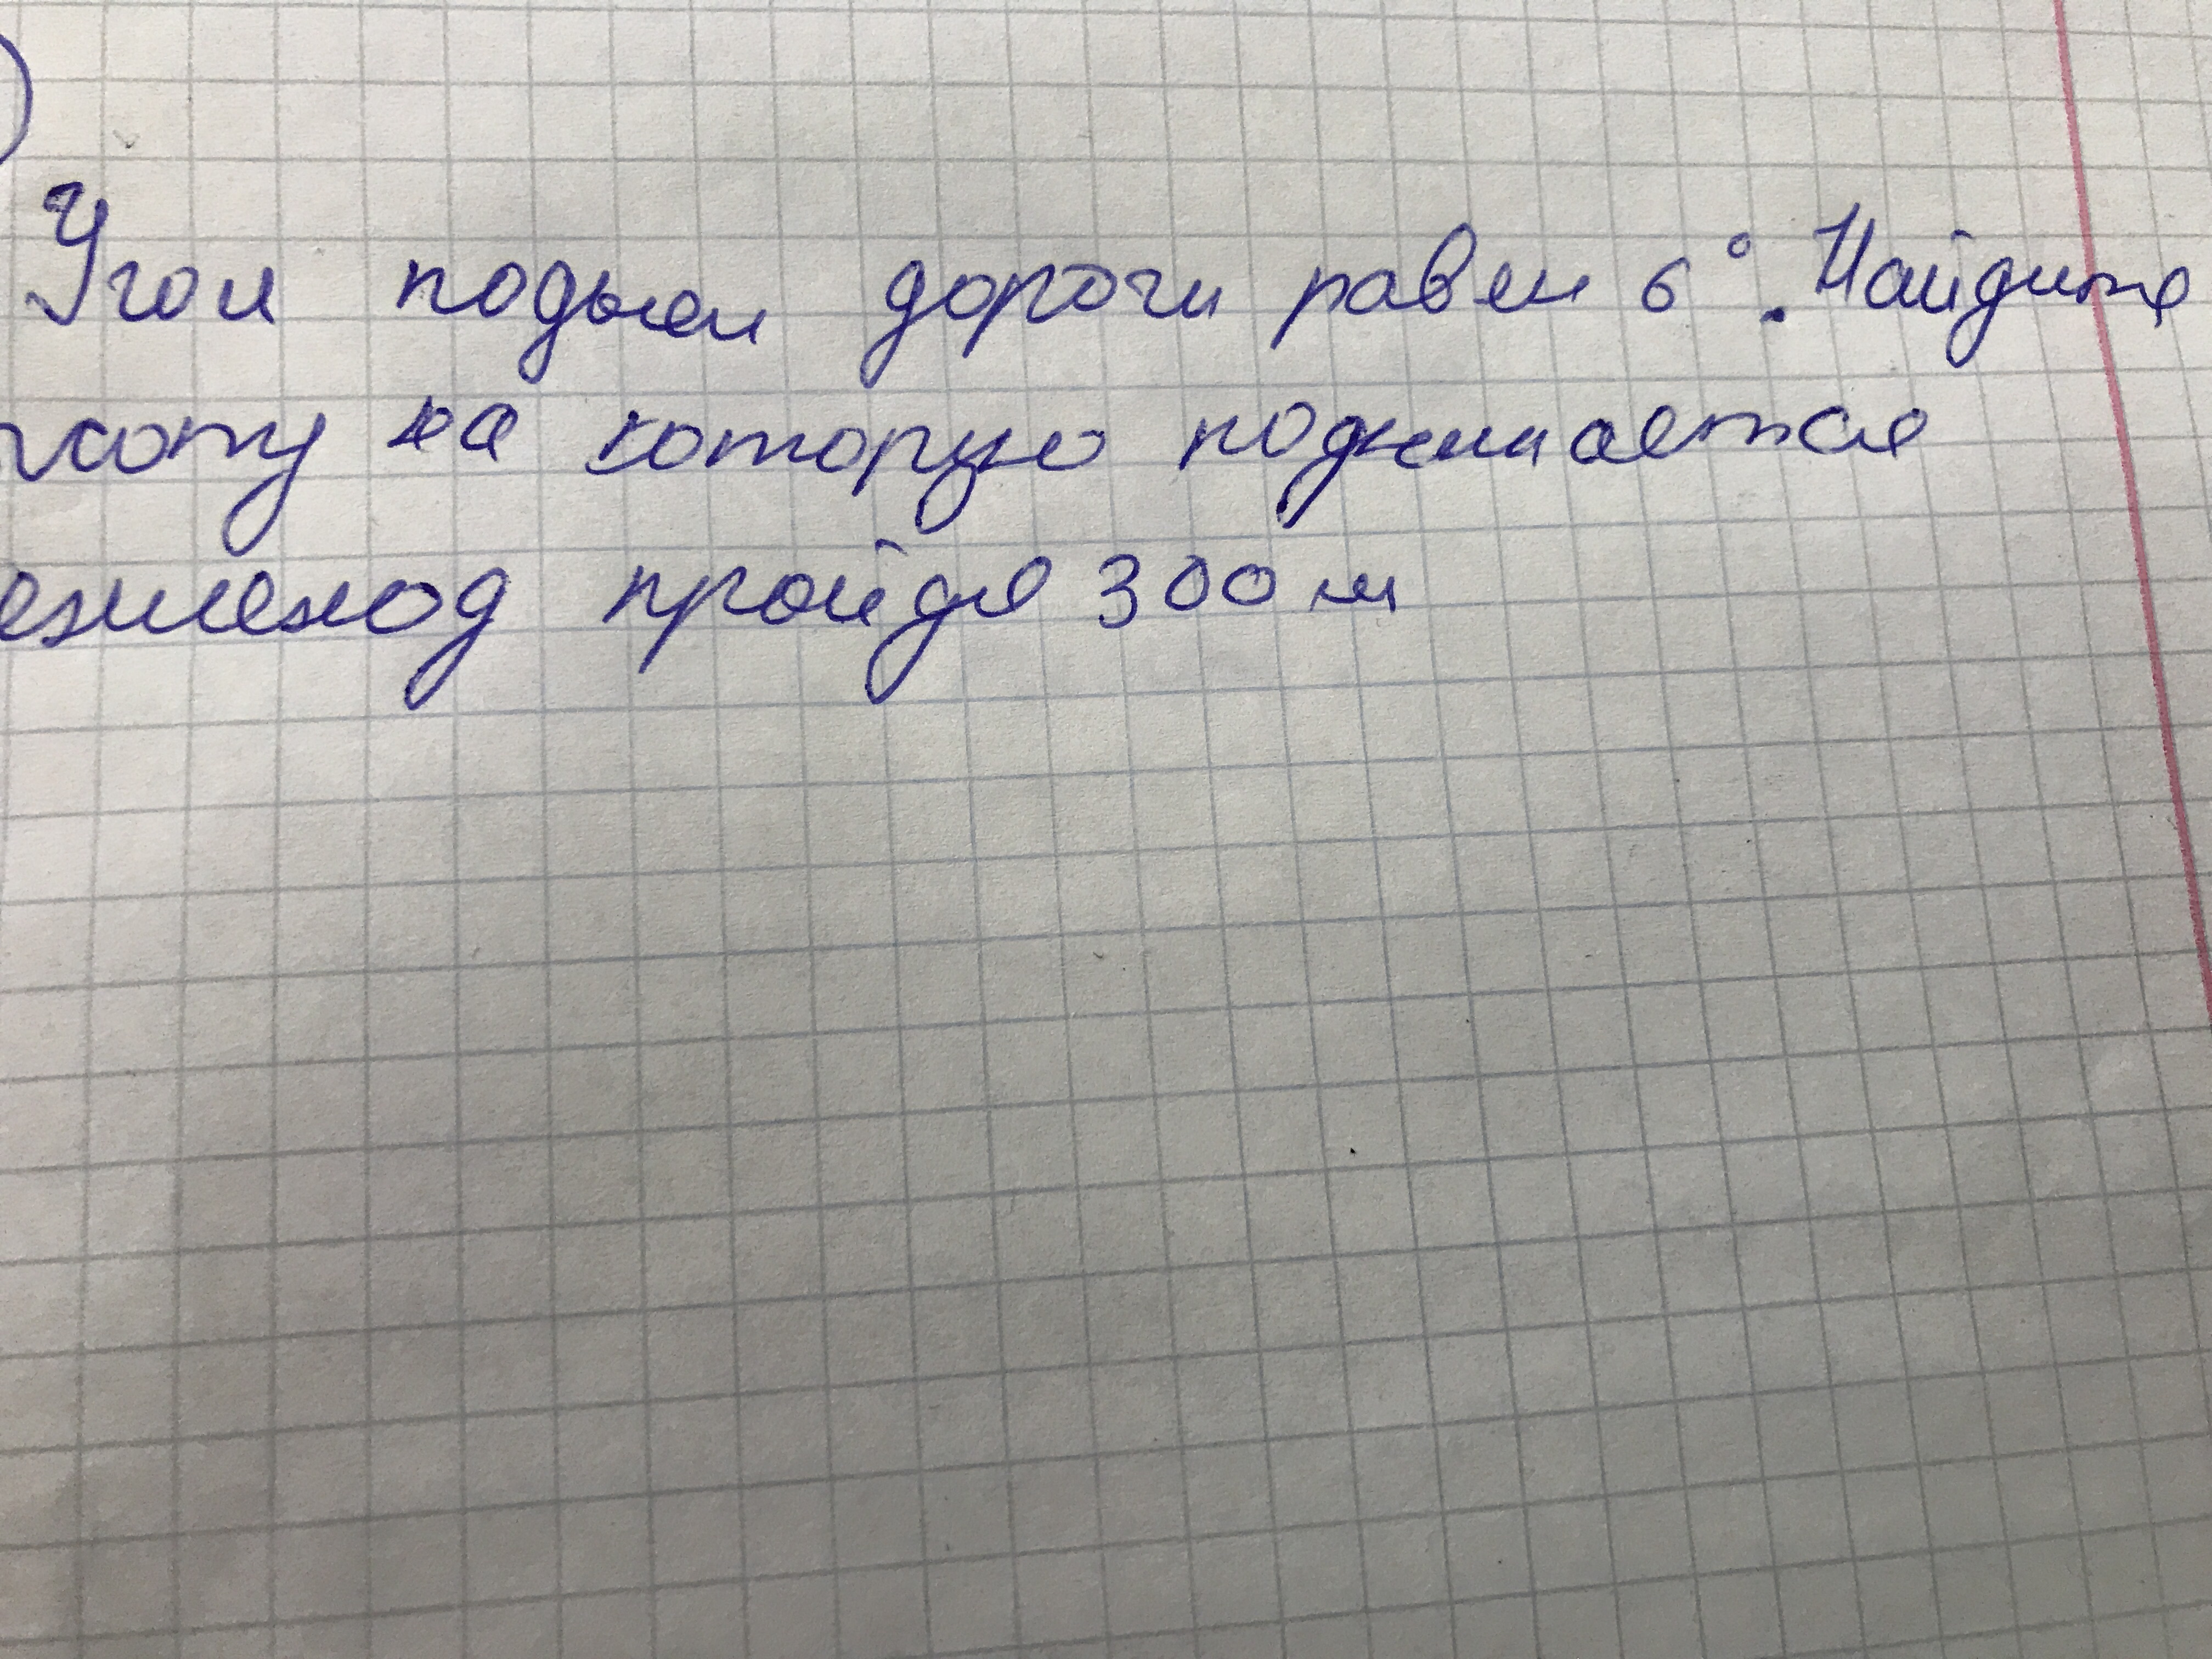 Угол подьем дороги равен 6°. Найдите
ысоту на которую поднимается
ешеход пройдя 300 м